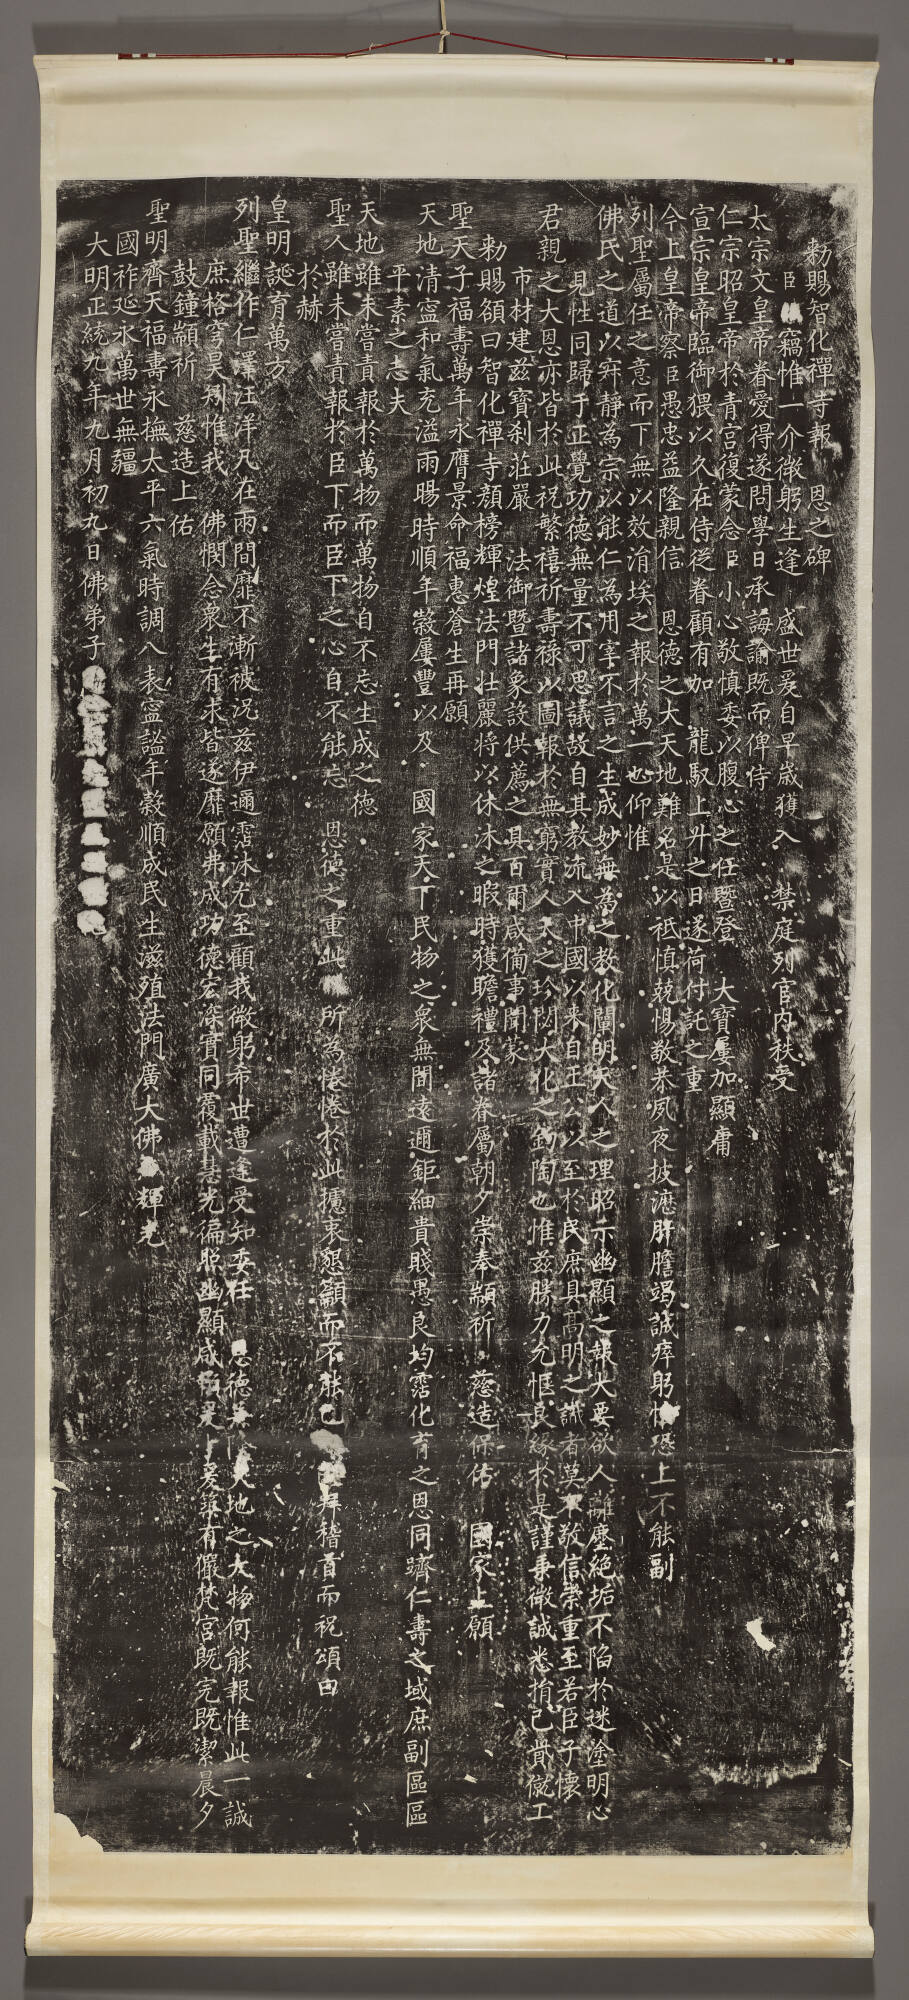 勑賜智化禪寺報　恩之碑
臣　竊惟一介微躬生逢　盛世爰自早歲獲入　禁庭列官内秩受
太宗文皇帝眷愛得遂問學日承　誨諭既而俾侍
仁宗昭皇帝於青宮復蒙念臣小心敬慎委以腹心之任暨登　大寶屢加顯庸
宣宗皇帝臨御猥以久在侍從眷顧有加　龍馭上升之日遂荷付託之重
今上皇帝察臣愚忠益隆親信　恩德之大天地難名是以祗慎兢惕敬恭夙夜披瀝肝膽竭誠瘁躬恐上不能副
列聖屬任之意而下無以效涓埃之報於萬一也仰惟
佛氏之道以寂靜為宗以能仁為用宰不言之生成妙無為之教化闡明天人之理昭示幽顯之報大要欲人離塵絶垢不陷於迷塗明心
見性同歸于正覺功德無量不可思議故自其教流入中國以來自王公以至於民庶具高明之識者莫不敬信崇重至若臣子懷
君親之大恩亦皆於此祝繁禧祈壽祿以圖報於無窮實人天之珍閟大化之鈞陶也惟茲勝力允愜良緣於是謹秉微誠悉捐己貲僦工
市材建茲寶刹莊嚴　法御暨諸象設供薦之具百爾咸備事聞蒙
勑賜頟曰智化禪寺顔榜輝煌法門壯麗將以休沐之暇時獲瞻禮及諸眷屬朝夕崇奉顓祈　慈造保佑　國家上願
聖天子福壽萬年永膺景命福惠蒼生再願
天地清寧和氣充溢雨暘時順年穀屢豐以及　國家天下民物之衆無間遠邇鉅細貴賤愚良均霑化育之恩同躋仁壽之域庶副區區
平素之志夫
天地雖未嘗責報於萬物而萬物自不忘生成之德
聖人雖未嘗責報於臣下而臣下之心自不能忘　恩德之重此　所為惓惓於此攄衷懇籲而不能已　拜稽首而祝頌曰
於赫
皇明誕育萬方
列聖繼作仁澤汪洋凡在兩間靡不漸被況茲伊邇霑沐尤至顧我微躬希世遭逢受知委任　恩德　天地之大物何能報惟此一誠
庶格穹昊矧惟我　佛憫念衆生有求皆遂靡願弗成功德宏深實同覆載慧光徧照幽顯咸　爰華有儼梵宮既完既潔晨夕
鼓鐘顓祈　慈造上佑
聖明齊天福壽永撫太平六氣時調八表寧謐年穀順成民生滋殖法門廣大佛　輝光
國祚延永萬世無疆
大明正統九年九月初九日佛弟子